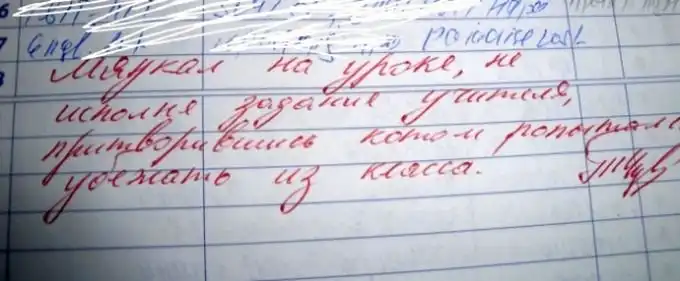 Engl.
Мяукал на уроке, не
исполня задание учителя,
притворившись котом попытался
убежать из класса.